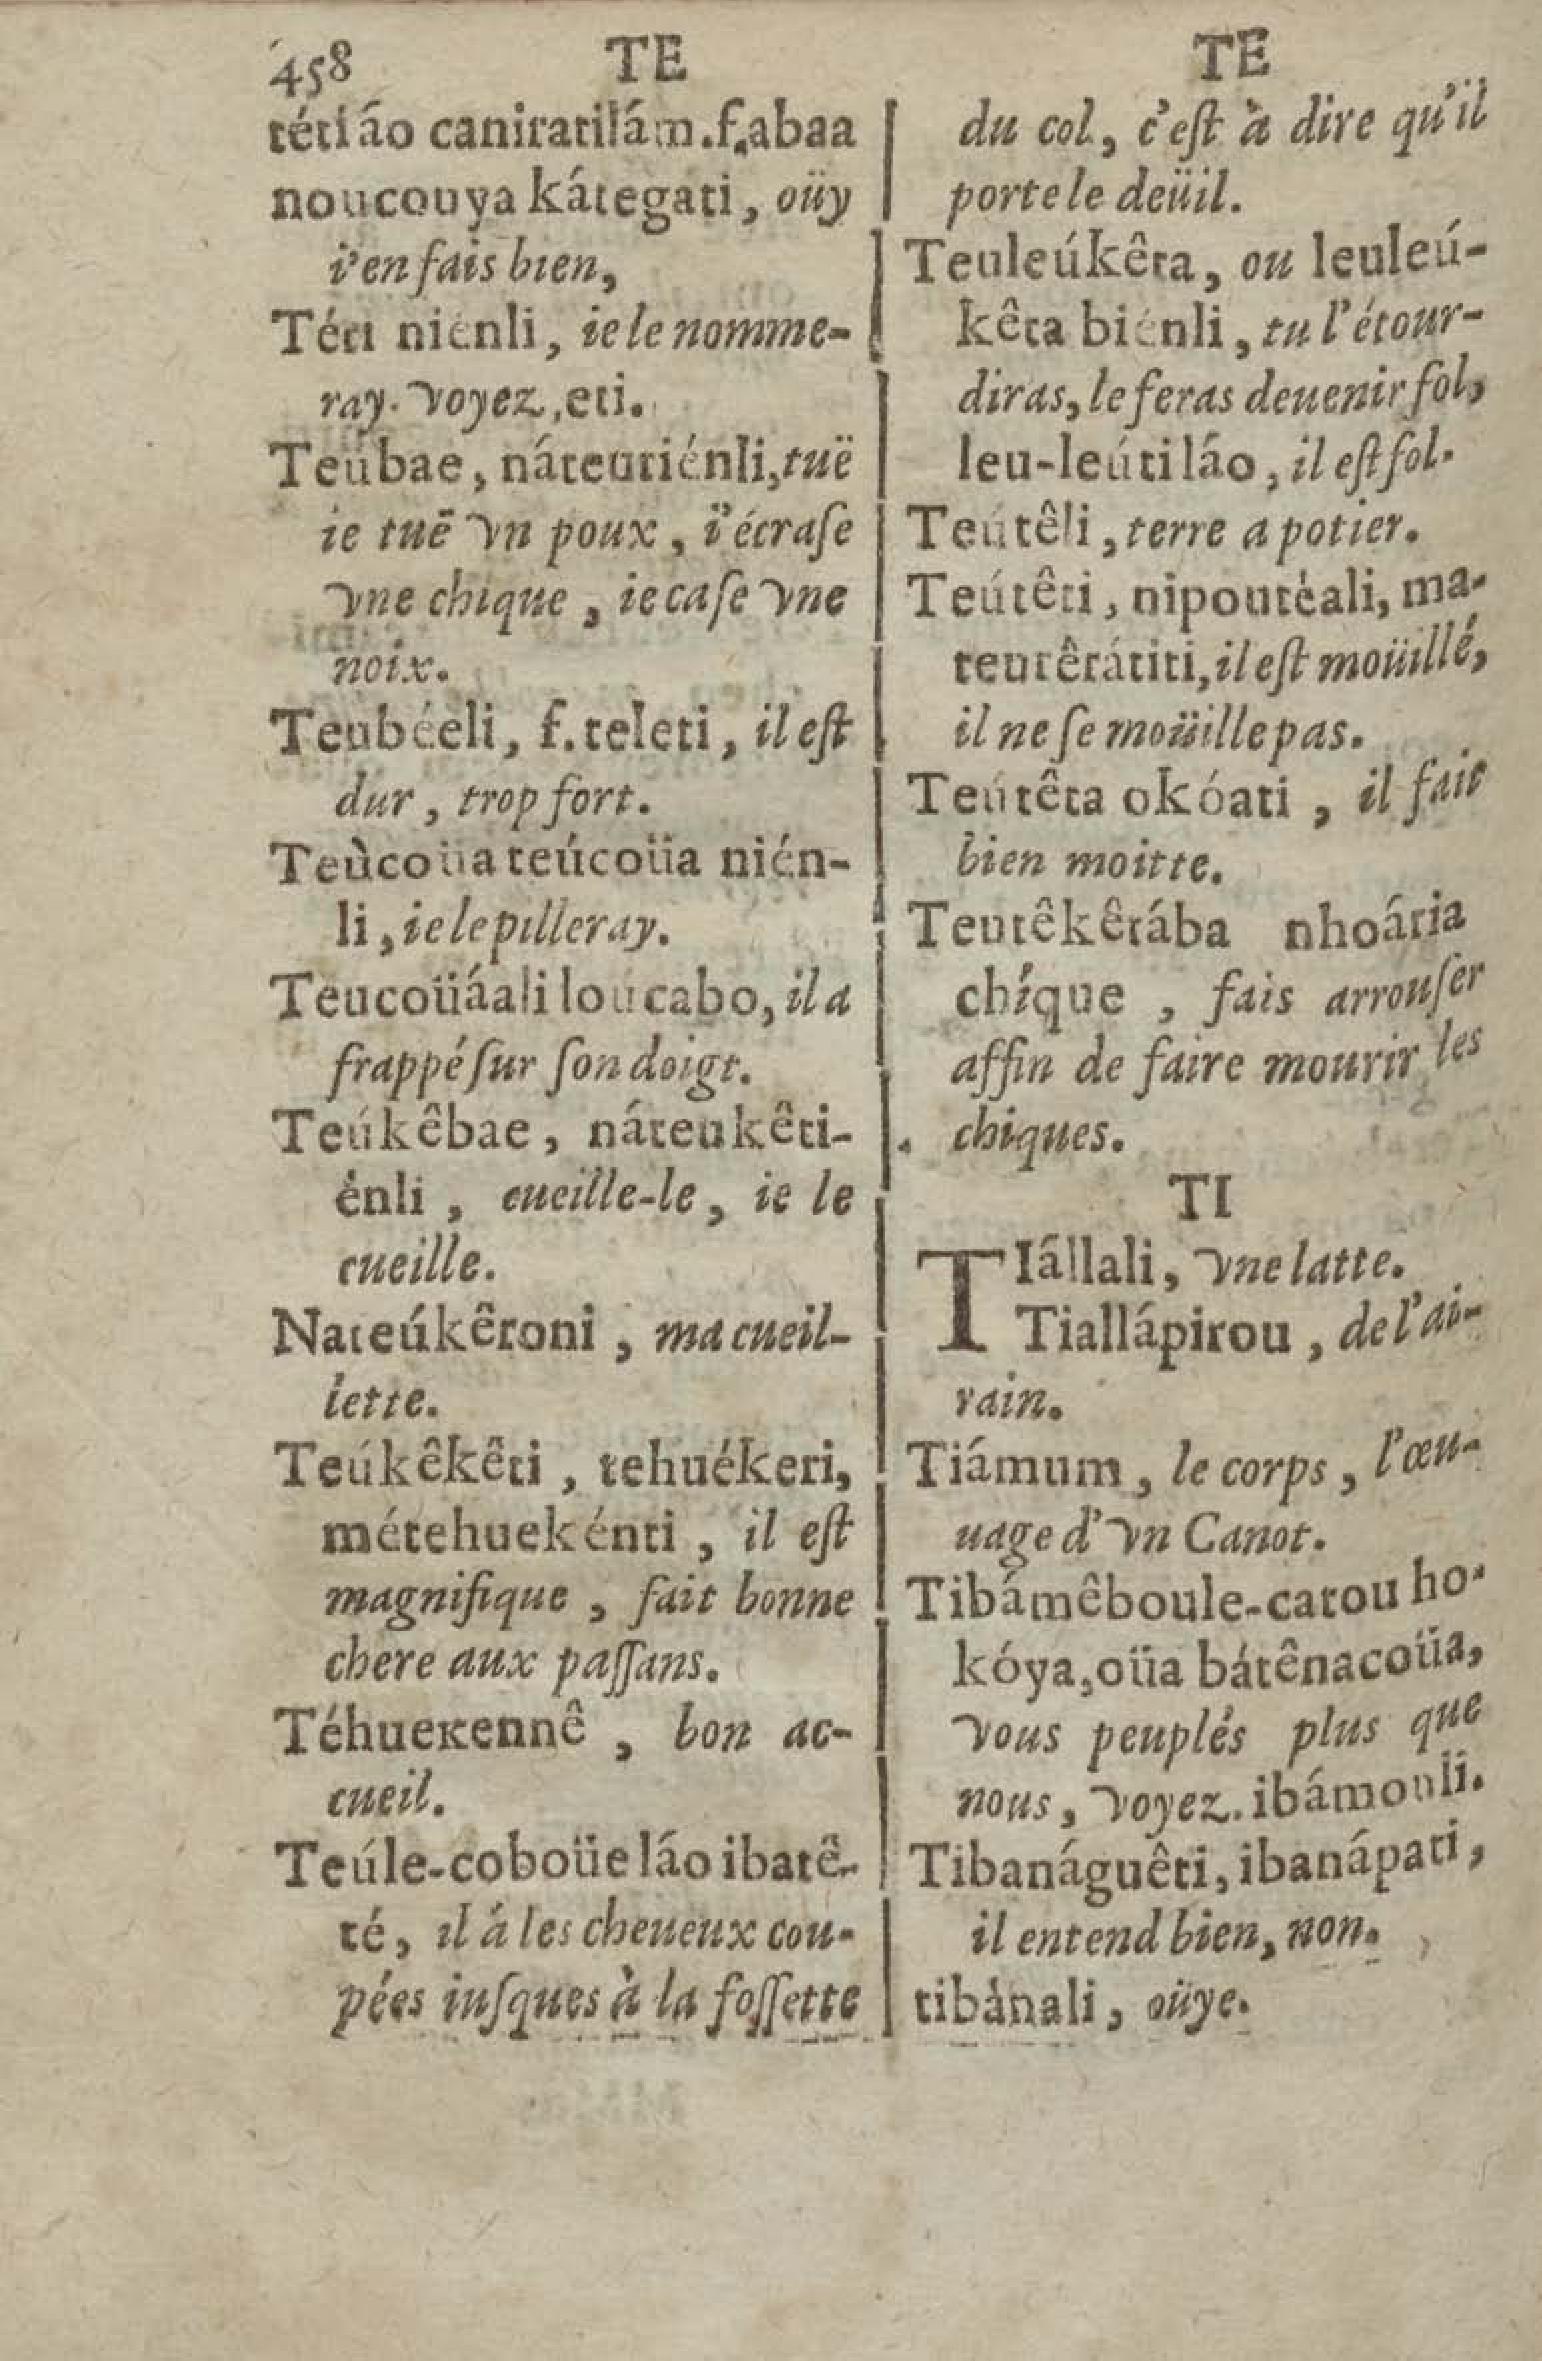 458 TE TE
tétiáo caniratilám.f.abaa
noucouya kátegati, oüy
i'en fais bien,
Téti niénli, ie le nomme-
ray. voyez, eti.
Teúbae, náteutiénli, tuë
ie tuë vn poux, i'écraſe
vne chique, ie caſe vne
noix.
Teubéeli, f. teleti, il eſt
dur, trop fort.
Teùcoüa teúcoüa nién-
li, ie le pilleray.
Teucoüáali loucabo, il a
frappé ſur ſon doigt.
Teúkêbae, náteukêti-
énli, cueille-le, ie le
cueille.
Nateúkêtoni, ma cueil-
lette.
Teúkêkêti, tehuékeri,
métehuekénti, il eſt
magnifique, fait bonne
chere aux paſſans.
Téhuekennê, bon ac-
cueil.
Teúle-coboüe láo ibatê-
té, il á les cheueux cou-
pées iuſques à la foſſette
du col, c'eſt à dire qu'il
porte le deüil.
Teuleúkêta, ou leuleú-
kêta biénli, tu l'étour-
diras, le feras deuenir fol,
leu-leúti láo, il eſt fol.
Teútêli, terre a potier.
Teútêti, nipoutéali, ma-
teutêtátiti, il eſt moüillé,
il ne ſe moüille pas.
Teútêta okóati, il fait
bien moitte.
Teutêkêtába nhoária
chíque, fais arrouſer
affin de faire mourir les
chiques.
TI
TIállali, vne latte.
Tiallápirou, de l'ai-
rain.
Tiámum, le corps, l'œu-
uage d'vn Canot.
Tibámêboule-catou ho-
kóya, oüa bátênacoüa,
vous peuplés plus que
nous, voyez. ibámouli.
Tibanáguêti, ibanápati,
il entend bien, non.
tibánali, oüye.